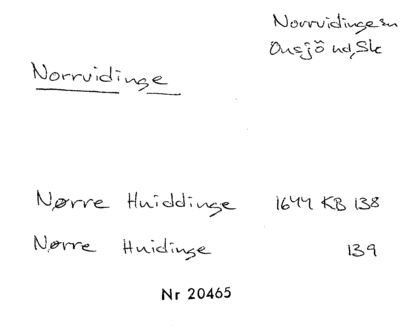 Norrvidinge sn
Onsjö hd, Sk
Norrvidinge
Nørre Huiddinge 1644 KB 138
Nørre Huidinge 139
Nr 20465